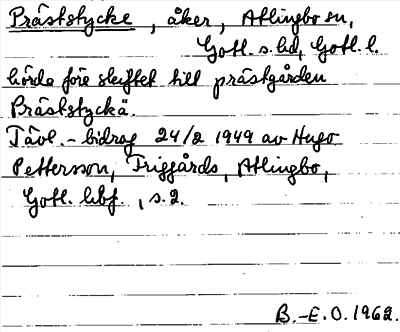 Präststycke, åker, Atlingbo sn,
Gotl. s. hd, Gotl. l.
hörde före skiftet till prästgården
Präststyckä.
Tävl.-bidrag 24/2 1949 av Hugo
Pettersson, Friggårds, Atlingbo,
Gotl. hbf., s. 2.
B.-E. O. 1962.